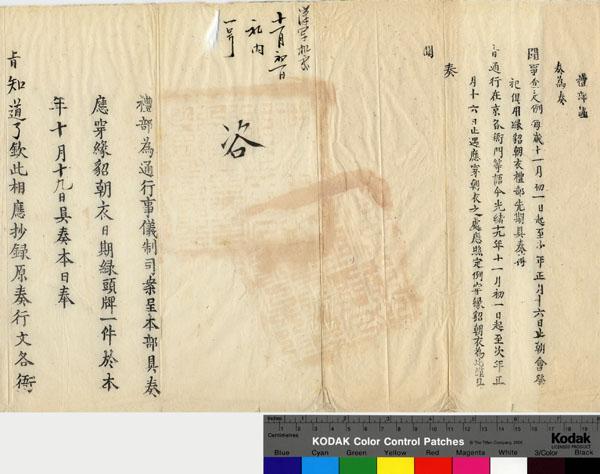 禮部謹
奏為奏
聞事查定例每歲十一月初一日起至次年正月十六日止朝會祭
祀俱用緣貂朝衣禮部先期具奏得
旨通行在京各衙門等語今光緒十九年十一月初一日起至次年正
月十六日止遇應穿朝衣之處應照定例穿緣貂朝衣為此謹具
奏
聞
十一月初一日
禮內
一號
咨
禮部為通行事儀制司案呈本部具奏
應穿緣貂朝衣日期綠頭牌一件於本
年十月十九日具奏本日奉
旨知道了欽此相應抄錄原奏行文各衙
Inches
Centimetres
KODAK Color Control Patches
© The Tiffen Company, 2000
Kodak
LICENSED PRODUCT
Blue Cyan Green Yellow Red Magenta White 3/Color Black